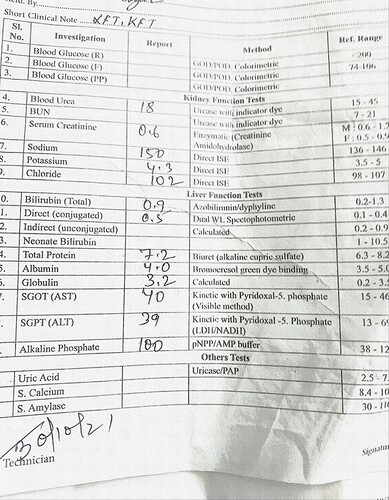 Short Clinical Note LFT, KFT
Sl. No. Investigation Report Method Ref. Range
1. Blood Glucose (R) GOD/POD, Colorimetric -200
2. Blood Glucose (F) GOD/POD, Colorimetric 74-106
3. Blood Glucose (PP) GOD/POD, Colorimetric
Kidney Function Tests
4. Blood Urea 18 Urease with indicator dye 15 - 45
5. BUN Urease with indicator dye 7 - 21
Serum Creatinine 0.6 Enzymatic (Creatinine Amidohydrolase) M : 0.6 - 1. F : 0.5 - 0.9
7. Sodium 150 Direct ISE 136 - 146
8. Potassium 4.3 Direct ISE 3.5 - 5
9. Chloride 102 Direct ISE 98 - 107
Liver Function Tests
0. Bilirubin (Total) 0.9 Azobilimin/dyphyline 0.2-1.3
1. Direct (conjugated) 0.5 Dual WL Spectophotometric 0.1 - 0.4
2. Indirect (unconjugated) Calculated 0.2 - 0.9
3. Neonate Bilirubin 1 - 10.5
4. Total Protein 7.2 Biuret (alkaline cupric sulfate) 6.3 - 8.2
5. Albumin 4.0 Bromocresol green dye binding 3.5 - 5.0
6. Globulin 3.2 Calculated 0.2 - 3.5
SGOT (AST) 40 Kinetic with Pyridoxal-5. phosphate (Visible method) 15 - 46
SGPT (ALT) 39 Kinetic with Pyridoxal -5. Phosphate (LDH/NADH) 13 - 69
Alkaline Phosphate 100 pNPP/AMP buffer 38 - 12
Others Tests
Uric Acid Uricase/PAP 2.5 - 7.
S. Calcium 8.4 - 10
S. Amylase 30 - 110
30/10/21
Technician
Signatur